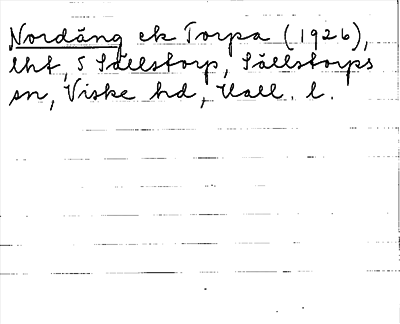 Nordäng ek Torpa (1926),
lht, S Sällstorp, Sällstorps
sn, Viske hd, Hall. l.